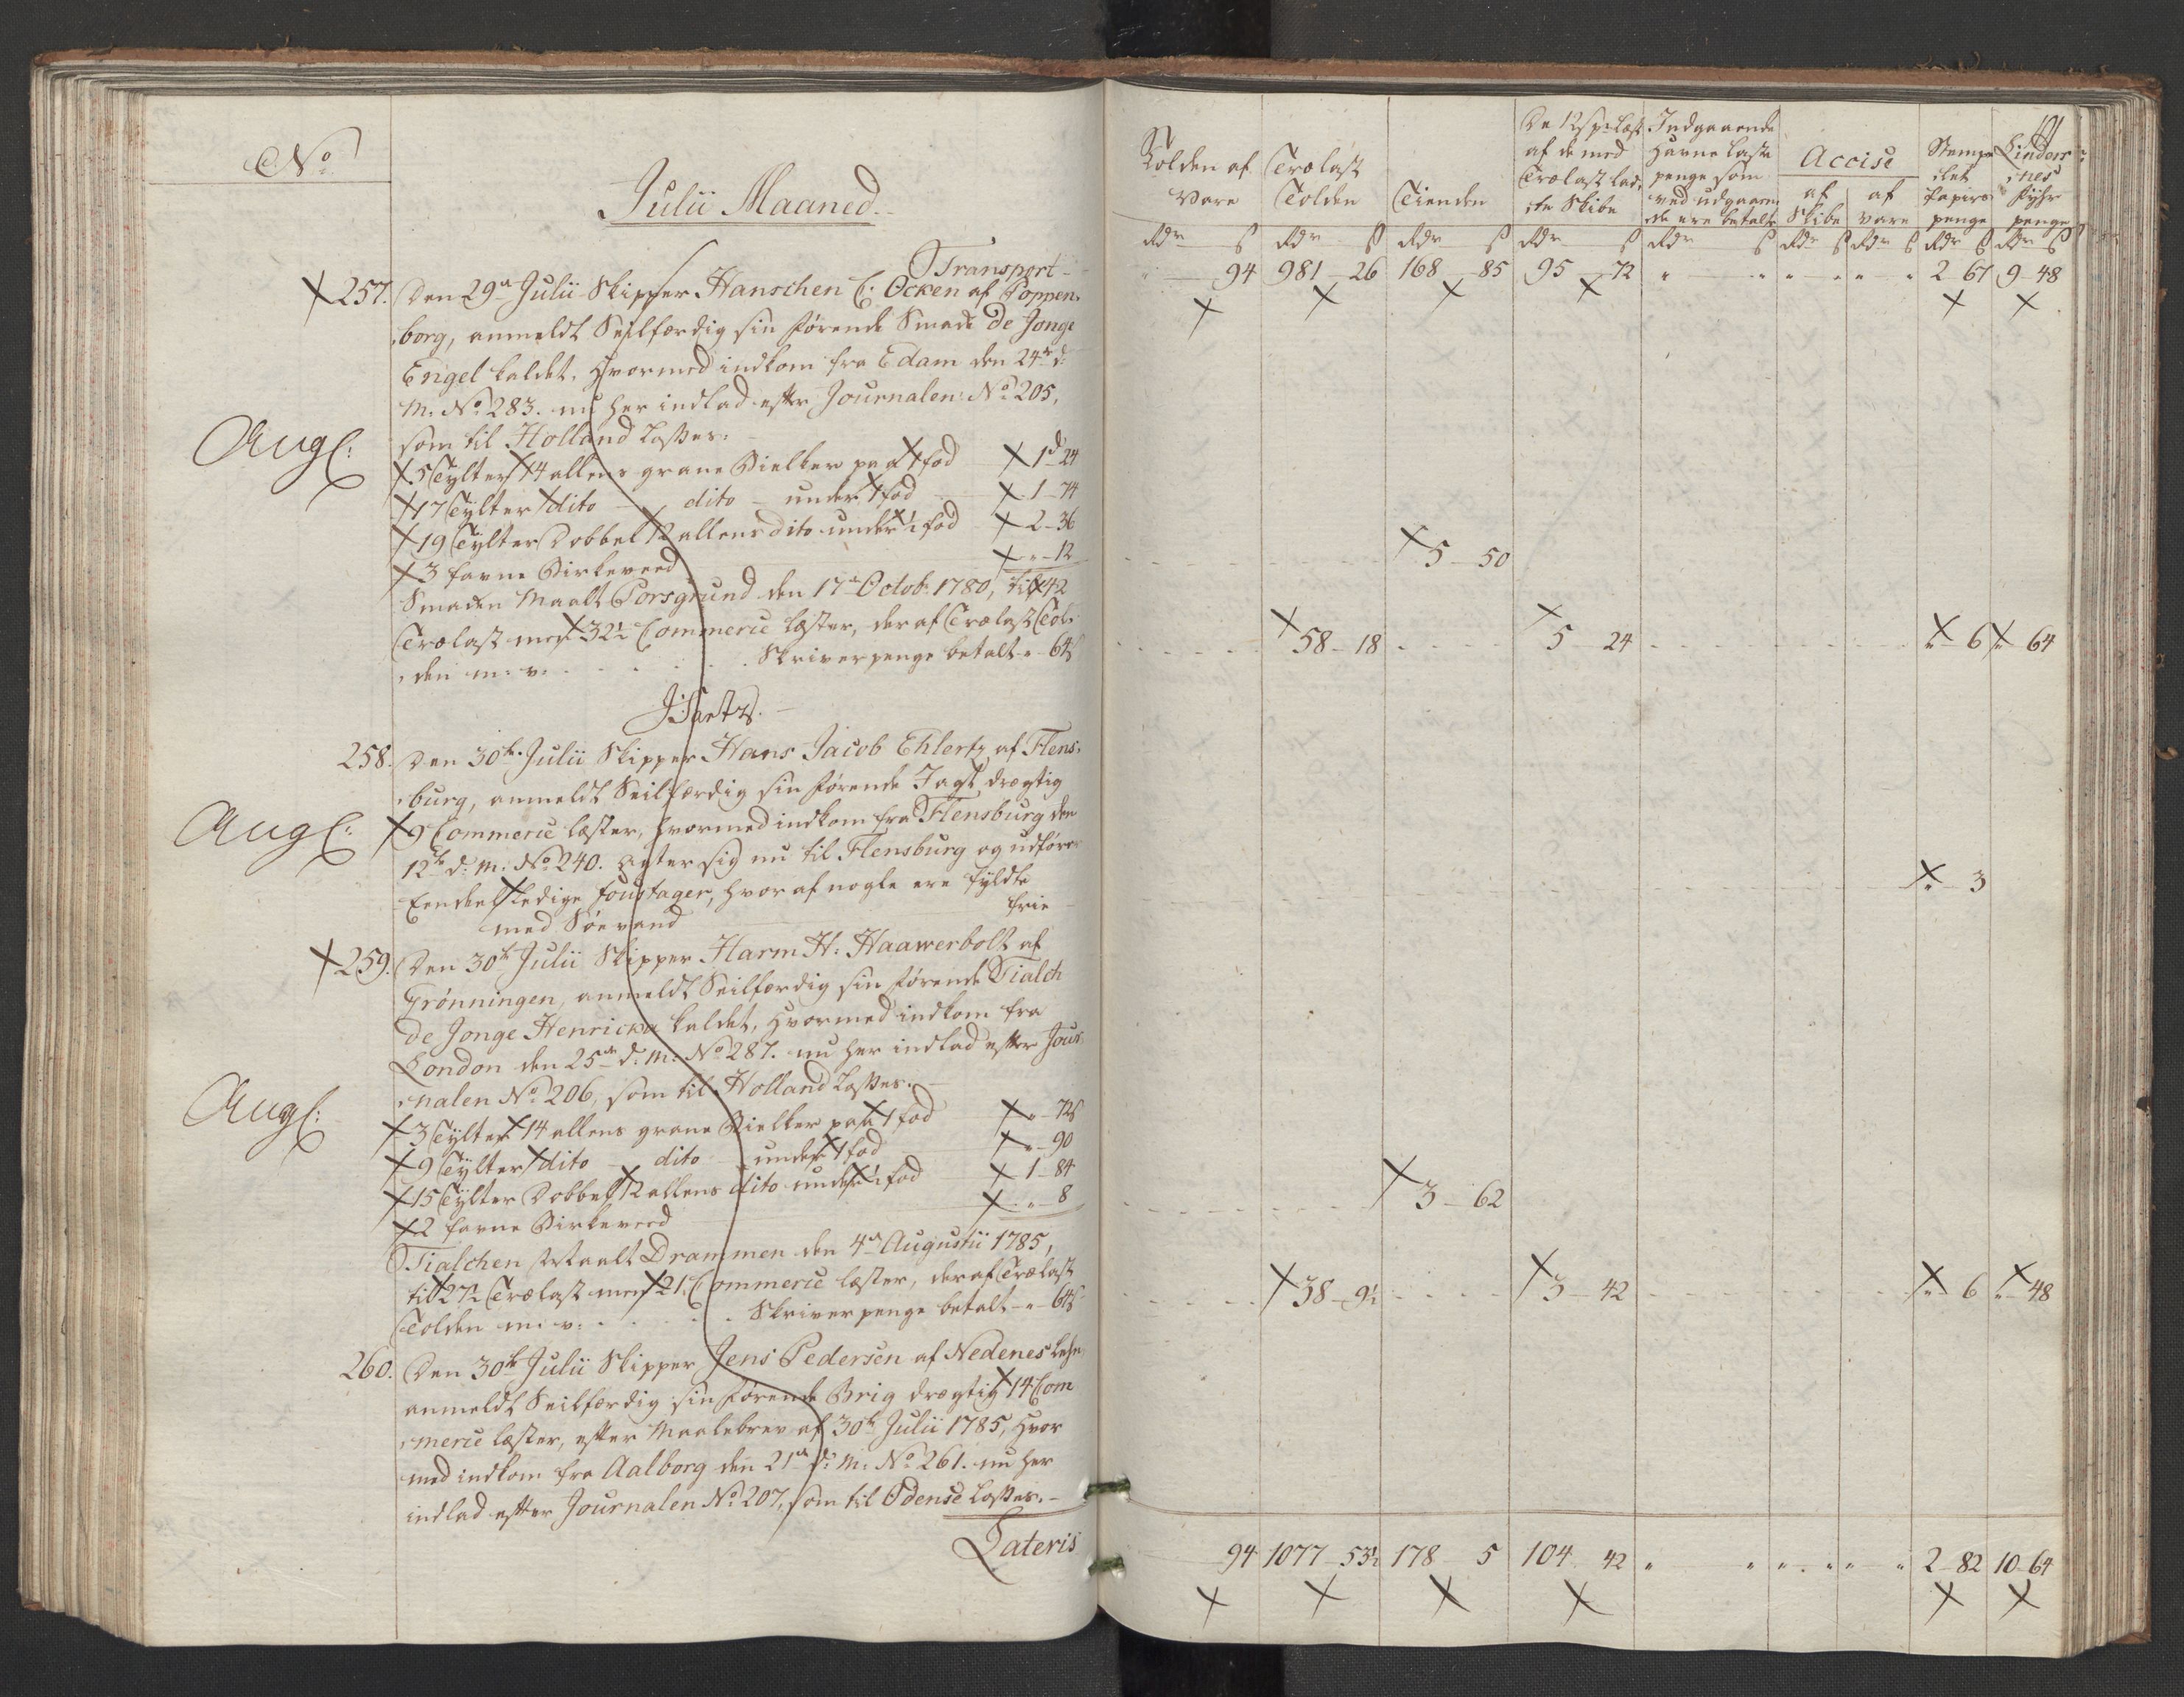 No
Julii Maaned.
Transport
257. Den 29de Julii Skipper Hanschen E. Ocken af Poppen-
borg, anmeldt Seilfærdig sin førende Smack De Jonge
Engel kaldet, hvormed indkom fra Edam den 24de d:
M: No 283. nu her indlad efter Journalen No 205,
som til Holland Losses.
Angl:
5 Tylter 14 allens grane Bielker paa 1 fod 1d 24
17 Tylter dito dito under 1 fod 1 - 74
19 Tylter Dobbel 12 allens dito under ½ fod 2 - 36
3 favne Birkeveed " - 12
Smacken Maalt Porsgrund den 17de Octob: 1780, til 42
Trælast med 32½ Commerce læster, deraf Trælast Tol-
den m: v: Skriverpenge betalt " - 64 s
J. Baetz.
258. Den 30te Julii Skipper Hans Jacob Ehlertz af Flens-
burg, anmeldt Seilfærdig sin førende Jagt drægtig
Angl:
9 Commerce læster, hvormed indkom fra Flensburg den
12te d: M: No 240. agter sig nu til Flensburg og udfører
Eendeel ledige foustager, hvoraf nogle ere fyldte
med Söevand frie
259. Den 30te Julii Skipper Harm H: Haawerbolt af
Grønningen, anmeldt Seilfærdig sin førende Tialch
De Jonge Henricka kaldet, hvormed indkom fra
London den 25de d: M: No 287. nu her indlad efter Jour-
nalen No 206, som til Holland Losses.
Angl:
3 Tylter 14 allens grane Bielker paa 1 fod " - 72 s
9 Tylter dito dito under 1 fod " - 90
15 Tylter Dobbel 12 allens dito under ½ fod 1 - 84
2 favne Birkeveed " - 8
Tialchen Maalt Drammen den 4de Augustii 1785,
til 27½ Trælast med 21 Commerce læster, deraf Trælast
Tolden m: v: Skriverpenge betalt " - 64 s
260. Den 30te Julii Skipper Jens Pedersen af Nedenes Lehn
anmeldt Seilfærdig sin førende Brig drægtig 14 Com-
merce læster, efter Maalebrev af 30te Julii 1785, hvor
med indkom fra Aalborg den 21de d: M: No 261. nu her
indlad efter Journalen No 207, som til Odense Losses.
Lateris
Tolden af Vare
Trælast Tolden
Tienden
De 12 s pr læst af de med Trælast lad-te Skibe
Indgaaende Havne Laste penge som ved udgaaen-de ere betalt
Accise
af Skibe
af Vare
Stemp-let Papirs penge
Linders-nes Fyhr penge
Rdr s Rdr s Rdr s Rdr s Rdr s Rdr s Rdr s Rdr s Rdr s
" 94 981 - 26 168 - 85 95 - 72 " " " " " " 2 - 67 9 - 48
5 - 50
58 - 18 5 - 24 " - 6 " - 64
" - 3
3 - 62
38 - 9½ 3 - 42 " - 6 " - 48
94 1077 - 53½ 178 5 104 42 " " " " " " 2 - 82 10 - 64